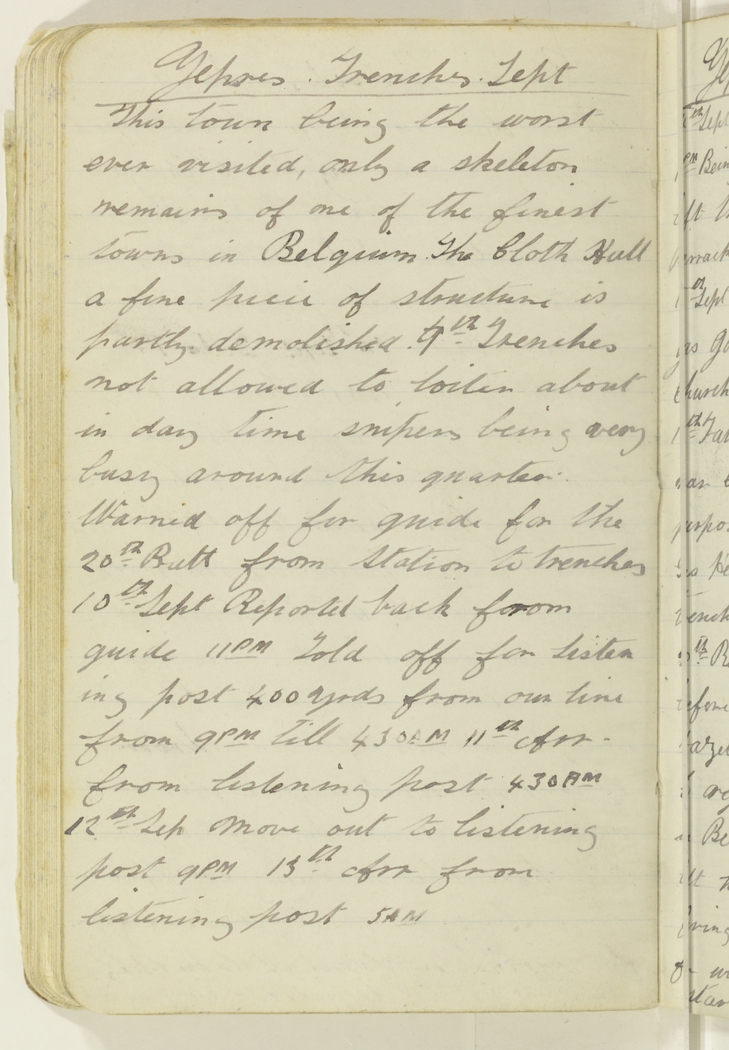 Yepres. Trenches. Sept
This town being the worst
ever visited, only a skeleton
remains of one of the finest
towns in Belgium. The Cloth Hall
a fine piece of structure is
partly demolished. 9th Trenches
not allowed to loiter about
in day time snipers being very
busy around this quarter.
Warned off for guide for the
20th Batt from Station to trenches
10th Sept Reported back from
guide 11PM Told off for listen
ing post 400 yrds from our line
from 9PM till 430AM 11th Arr.
from listening post 430AM
12th Sep Move out to listening
post 9PM 13th Arr from
listening post 5AM